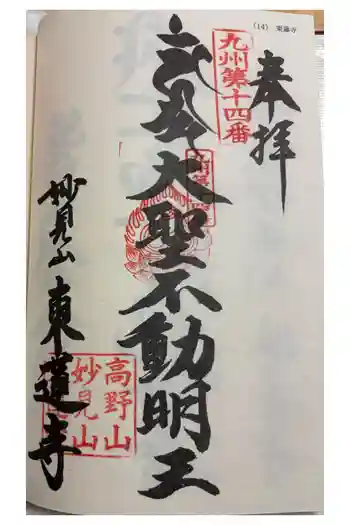 (14) 東蓮寺
奉拝
九州第十四番
弐吽大聖不動明王
妙見山 東蓮寺
高野山
妙見山